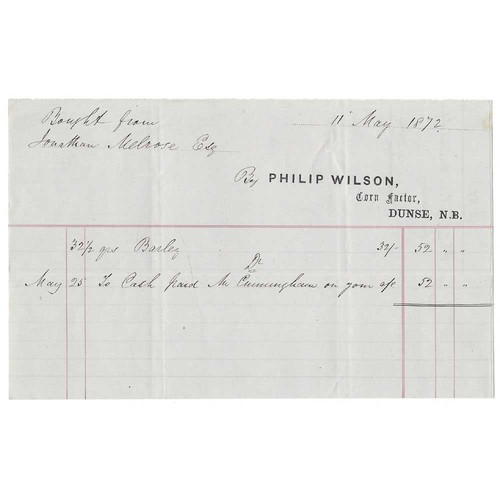 Bought from
11 May 1872.
Jonathan Melrose Esq
By PHILIP WILSON,
Corn Factor,
DUNSE, N.B.
32½ qrs Barley 32/- 52 " "
Dr
May 25 To Cash paid Mr Cunningham on your a/c 52 " "